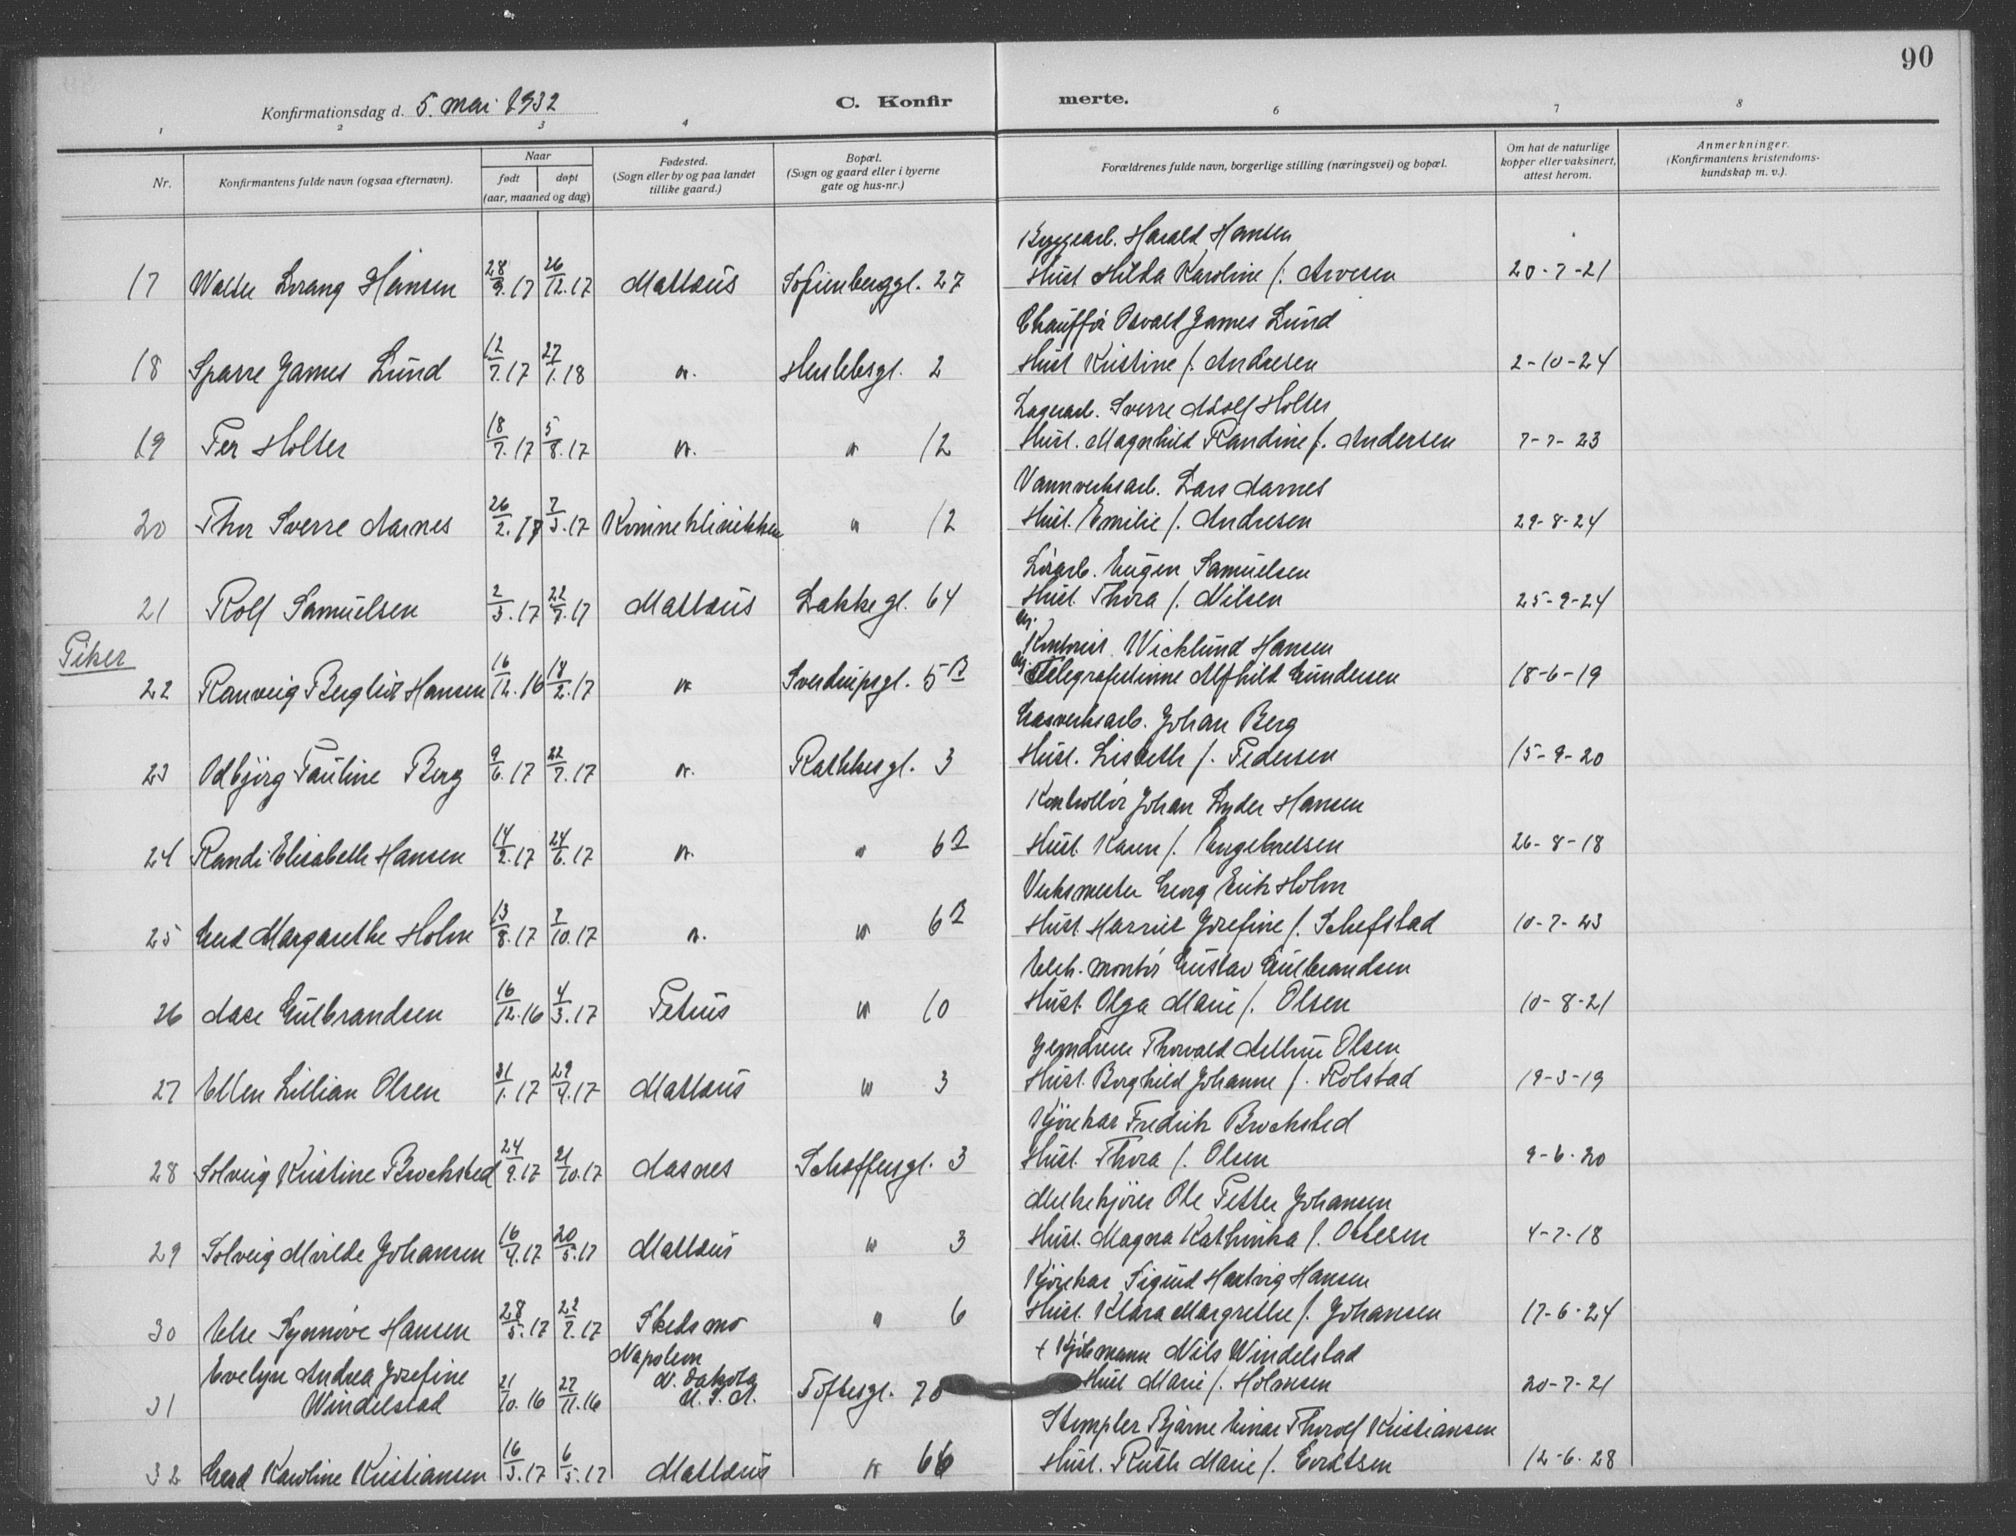 90
Konfirmationsdag d. 5. mai 1932
C. Konfirmerte.
1 2 3 4 6 7 8
Nr.
Konfirmantens fulde navn (ogsaa efternavn).
Naar
født døpt
(aar, maaned og dag)
Fødested.
(Sogn eller by og paa landet
tillike gaard.)
Bopæl.
(Sogn og gaard eller i byerne
gate og hus-nr.)
Forældrenes fulde navn, borgerlige stilling (næringsvei) og bopæl.
Om hat de naturlige
kopper eller vaksinert,
attest herom.
Anmerkninger.
(Konfirmantens kristendoms-
kundskap m. v.).
Byggearb. Harald Hansen
17 Walter Lorang Hansen 28/9.17 26/12.17 Mattæus Sofienberggt. 27 Hust. Hilda Karoline f. Arvesen 20-7-21
Chaufför Osvald James Lund
18 Sparre James Lund 12/7.17 27/1.18 " Heslebsgt. 2 Hust Kristine f. Andresen 2-10-24
Lagerarb. Sverre Adolf Holter
19 Per Holter 18/7.17 5/8.17 " " 12 Hust. Magnhild Randine f. Andersen 7-7-23
Vannverksarb. Lars Aarnes
20 Thor Sverre Aarnes 26/2.17 7/3.17 Kvinneklinikken " 12 Hust. Emilie f. Andresen 29-8-24
Eugen Samuelsen
21 Rolf Samuelsen 2/3.17 22/7.17 Mattæus Lakkegt. 64 Hust. Thora f. Nilsen 25-9-24
Piker
Ug. Kontorist Wicklund Hansen
22 Ranveig Bergliot Hansen 16/12.16 18/2.17 " Sverdrupsgt. 5B Ug. Telegrafistinne Alfhild Gundersen 18-6-19
Gasverksarb. Johan Berg
23 Odbjörg Pauline Berg 9/6.17 22/7.17 " Rathkesgt. 3 Hust. Lisbeth f. Pedersen 15-9-20
Kontrollör Johan Lyder Hansen
24 Randi Elisabeth Hansen 14/2.17 24/6.17 " " 6B Hust. Karen f. Engebretsen 26-8-18
Verksmester Georg Erik Holm
25 Gerd Margarethe Holm 13/8.17 7/10.17 " " 6B Hust. Harriet Josefine f. Schefstad 10-7-23
Elek. montör Gustav Gulbrandsen
26 Aase Gulbrandsen 16/12.16 4/3.17 Petrus " 10 Hust. Olga Marie f. Olsen 10-8-21
Jerndreier Thorvald Arthur Olsen
27 Ellen Lillian Olsen 31/1.17 29/4.17 Mattæus " 3 Hust. Borghild Johanne f. Rolstad 19-3-19
Kjörekar Fredrik Brocksted
28 Solveig Kristine Brocksted 24/9.17 21/10.17 Aasnes Schaffersgt. 3 Hust. Thora f. Olsen 9-6-20
Melkekjörer Ole Petter Johansen
29 Solveig Milde Johansen 16/4.17 20/5.17 Mattæus " 3 Hust. Magna Kathinka f. Ottesen 4-7-18
Kjörekar Sigurd Hartvig Hansen
30 Else Synnöve Hansen 28/5.17 22/7.17 Skedsmo " 6 Hust. Klara Margrethe f. Johansen 17-6-24
Evelyn Andrea Josefine Napoleon + Nils Windelstad
31 Windelstad 21/10.16 27/11.16 N. Dakota U. S. A. Toftesgt. 70 Hust Marie f. Holmsen 20-7-21
Stempler Bjarne Einar Thorolf Kristiansen
32 Gerd Karoline Kristiansen 16/3.17 6/5.17 Mattæus " 66 Hust. Ruth Marie f. Evertsen 12-6-28